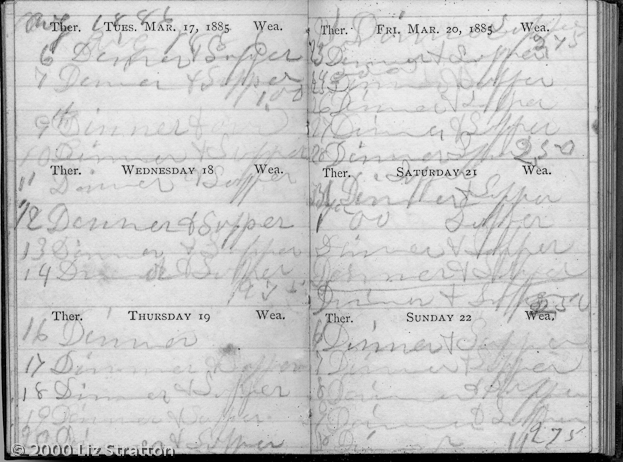 Ther. TUES. MAR. 17, 1885. Wea.
6 Dinner & Supper
7 Dinner & Supper
1 00
9 Dinner &
10 Dinner & Supper
Ther. WEDNESDAY 18 Wea.
11 Dinner & Supper
12 Denner & Supper
13 Dinner & Supper
14 Dinner & Supper
1975
Ther. THURSDAY 19 Wea.
16 Dinner
17 Dinner & Supper
18 Dinner & Supper
19 Dinner & Supper
20 Dinner & Supper
© 2000 Liz Stratton
Ther. FRI. MAR. 20, 1885 Wea.
Dinner & Supper
375
Dinner & Supper
Dinner & Supper
Dinner & Supper
Dinner & Supper
250
Ther. SATURDAY 21 Wea.
Dinner & Supper
00 Supper
Dinner & Supper
Dinner & Supper
Dinner & Supper
250
Ther. SUNDAY 22 Wea.
6 Dinner & Supper
7 Dinner & Supper
8 Dinner & Supper
9 Dinner & Supper
Dinner
275